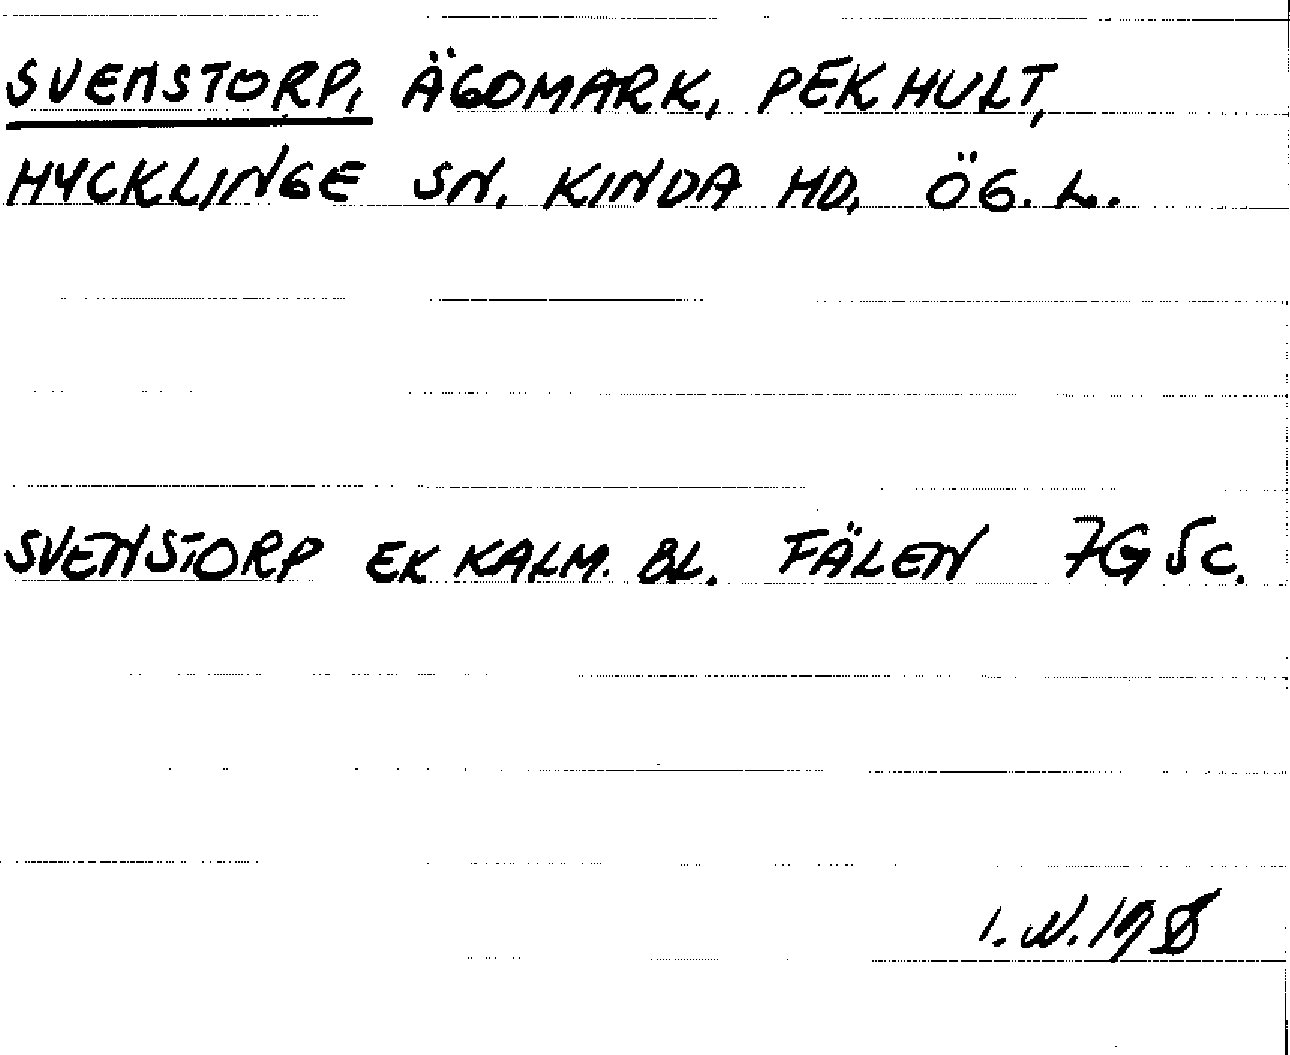 SVENSTORP, ÄGOMARK, PEKHULT,
HYCKLINGE SN, KINDA HD, ÖG. L.
SVENSTORP EK KALM. BL. FÄLEN 7G 5c.